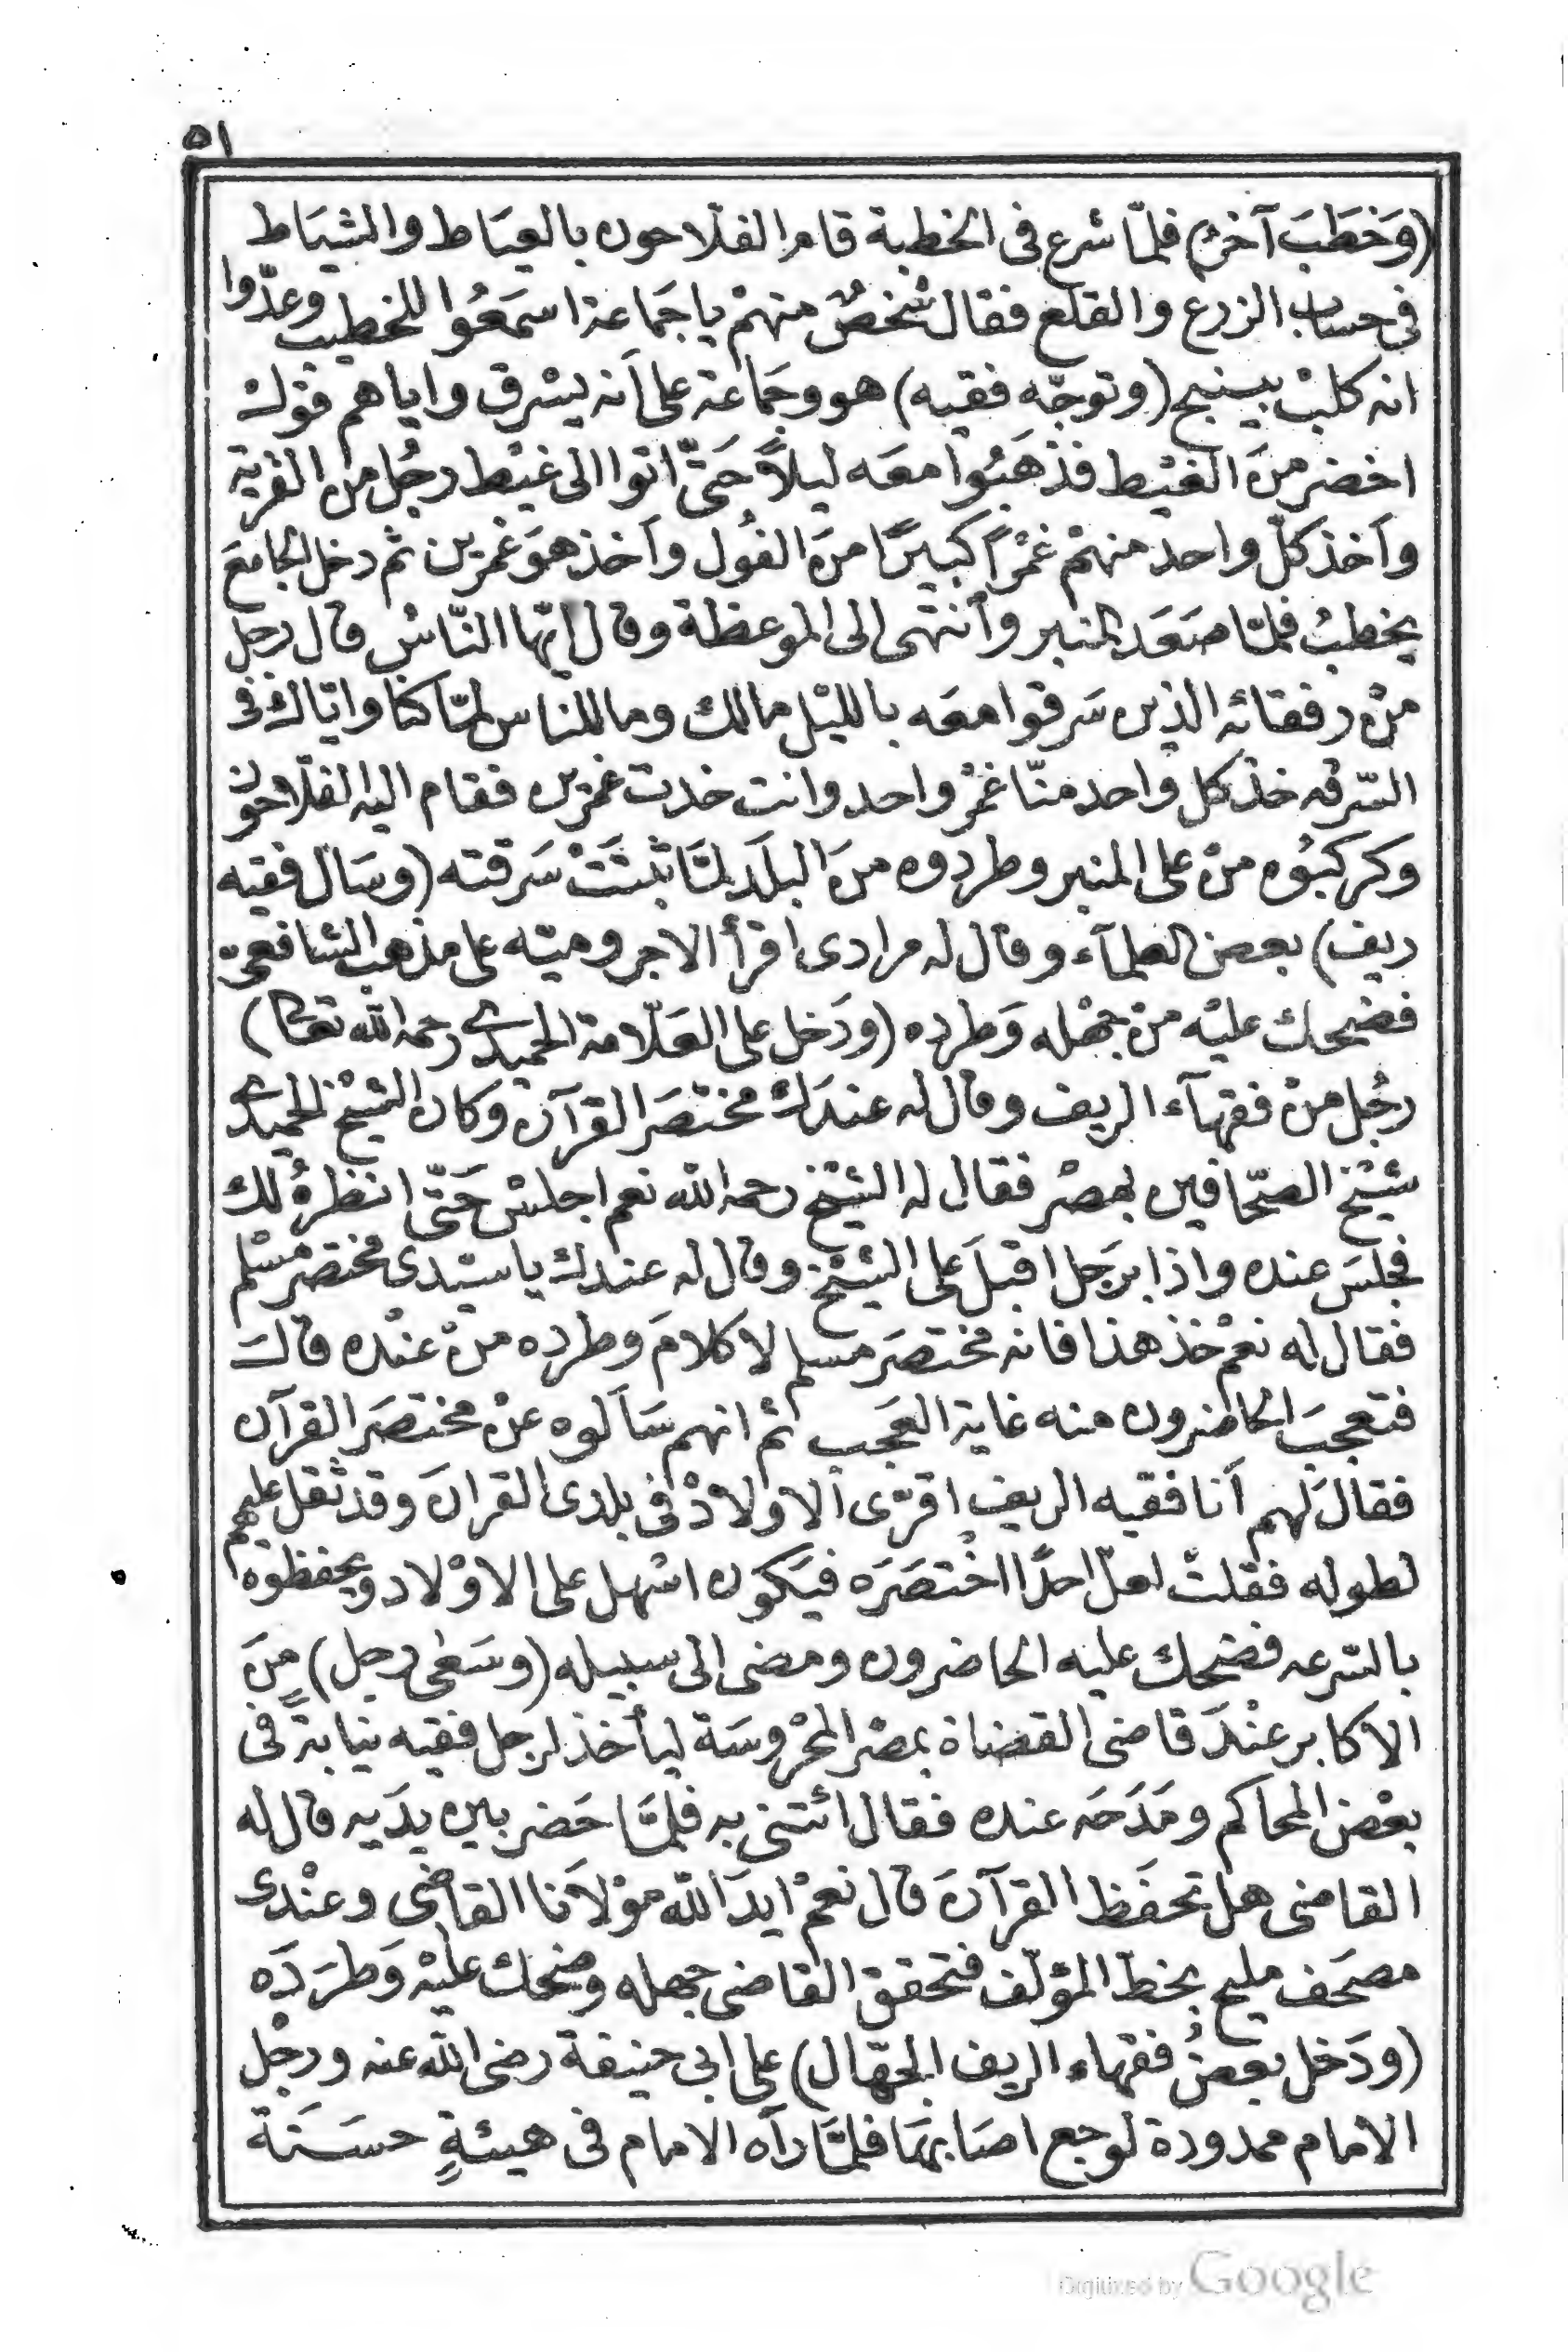 ٥١
(وَخَطَبَ آخَرُ) فلمّا شرع فى الخطبة قام الفلّاحون بالعيَاط والشيَاط
فى حساب الزرع والقلع فقال شخصٌ منهمْ يا جَماعة اسمَعُوا للخطيب وعدّوا
انه كلبْ بينبح (وتوجّه فقيه) هو وجَماعة على أنه يسْرق واياهم فول
اخضر منَ الغيْط فذهَبُوا معَه ليلاً حَتّى اتوا الى غيْط رجُل من القرية
وأخذ كلّ واحد منهمْ غمْراً كبيرًا منَ الفُول وأخذ هوَ غمرين ثم دخل الجامعَ
يخطبُ فلمّا صَعَد المنبر وأنتهى الى الموعظة وقال ايّها النّاسُ قال رجل
منْ رفقائه الذين سَرقوا معَه بالليْل مالك وما للناس لمّا كنا وايّاك فى
السّرقه خذ كل واحد منّا غمْر واحد وانت خدت غمْرين فقام اليه الفلّاحون
وكركبُوه منْ على المنبر وطردوه منَ البلَد لمَّا ثبتَتْ سَرقته (وسَال فقيه
ريف) بعض العلمآء وقال له مرادى اقرأ الاجروميّه على مذهب الشافعىّ
فضحك عليْه منْ جهْله وَطرده (ودَخل على العَلّامة الحميدى رحمه الله تعالى)
رجُل منْ فقهآء الريف وقال له عندَك مختصَر القرآن وكان الشيخ الحميدى
شيْخ الصحّافين بمصْر فقال له الشيْخ رحمه الله نعم اجلسْ حَتّى انظرهُ لك
فجلسَ عنده واذا برَجل اقبَلَ على الشيْخ وقال له عندك يا سيّدى مختصَر مسْلم
فقال له نعمْ خذ هذا فانه مختصَر مسلم لا كلامَ وطرده منْ عنْده قال
فتعجبَ الحاضرون منه غاية العَجَب ثم انهم سَألوه عنْ مختصَر القرآن
فقالَ لهم أنا فقيه الريف اقرّى الاولادْ فى بلدى القرانَ وقد ثقل عليهم
لطوله فقلتْ لعلّ احدًا اخْتصَرَه فيَكون اسْهل على الاوْلاد ويحفظوه
بالسّرعه فضحك عليه الحاضرون ومضى الى سبيله (وسَعٰى رجل) مِنَ
الاكابر عنْدَ قاضى القضاة بمصْر المحْروسَة ليأخذ لرجل فقيه نيابةً فى
بعْض المحاكم ومَدَحَه عنده فقال ائتنى به فلمَّا حَضر بين يدَيه قال له
القاضى هل تحفَظ القرآنَ قال نعمْ ايدَ الله موْلاَنا القاضى وعنْدى
مصحَف مليح بخطّ المؤلّف فتحقق القاضى جهله وضحك عليْه وَطرَدَه
(ودَخل بعضُ فقهاء الريف الجهّال) على ابى حنيفة رضى الله عنه ورجْل
الامام ممدودة لوجع اصَابهَا فلمَّا رآه الامام فى هيئةٍ حسَنَة
Digitized by Google